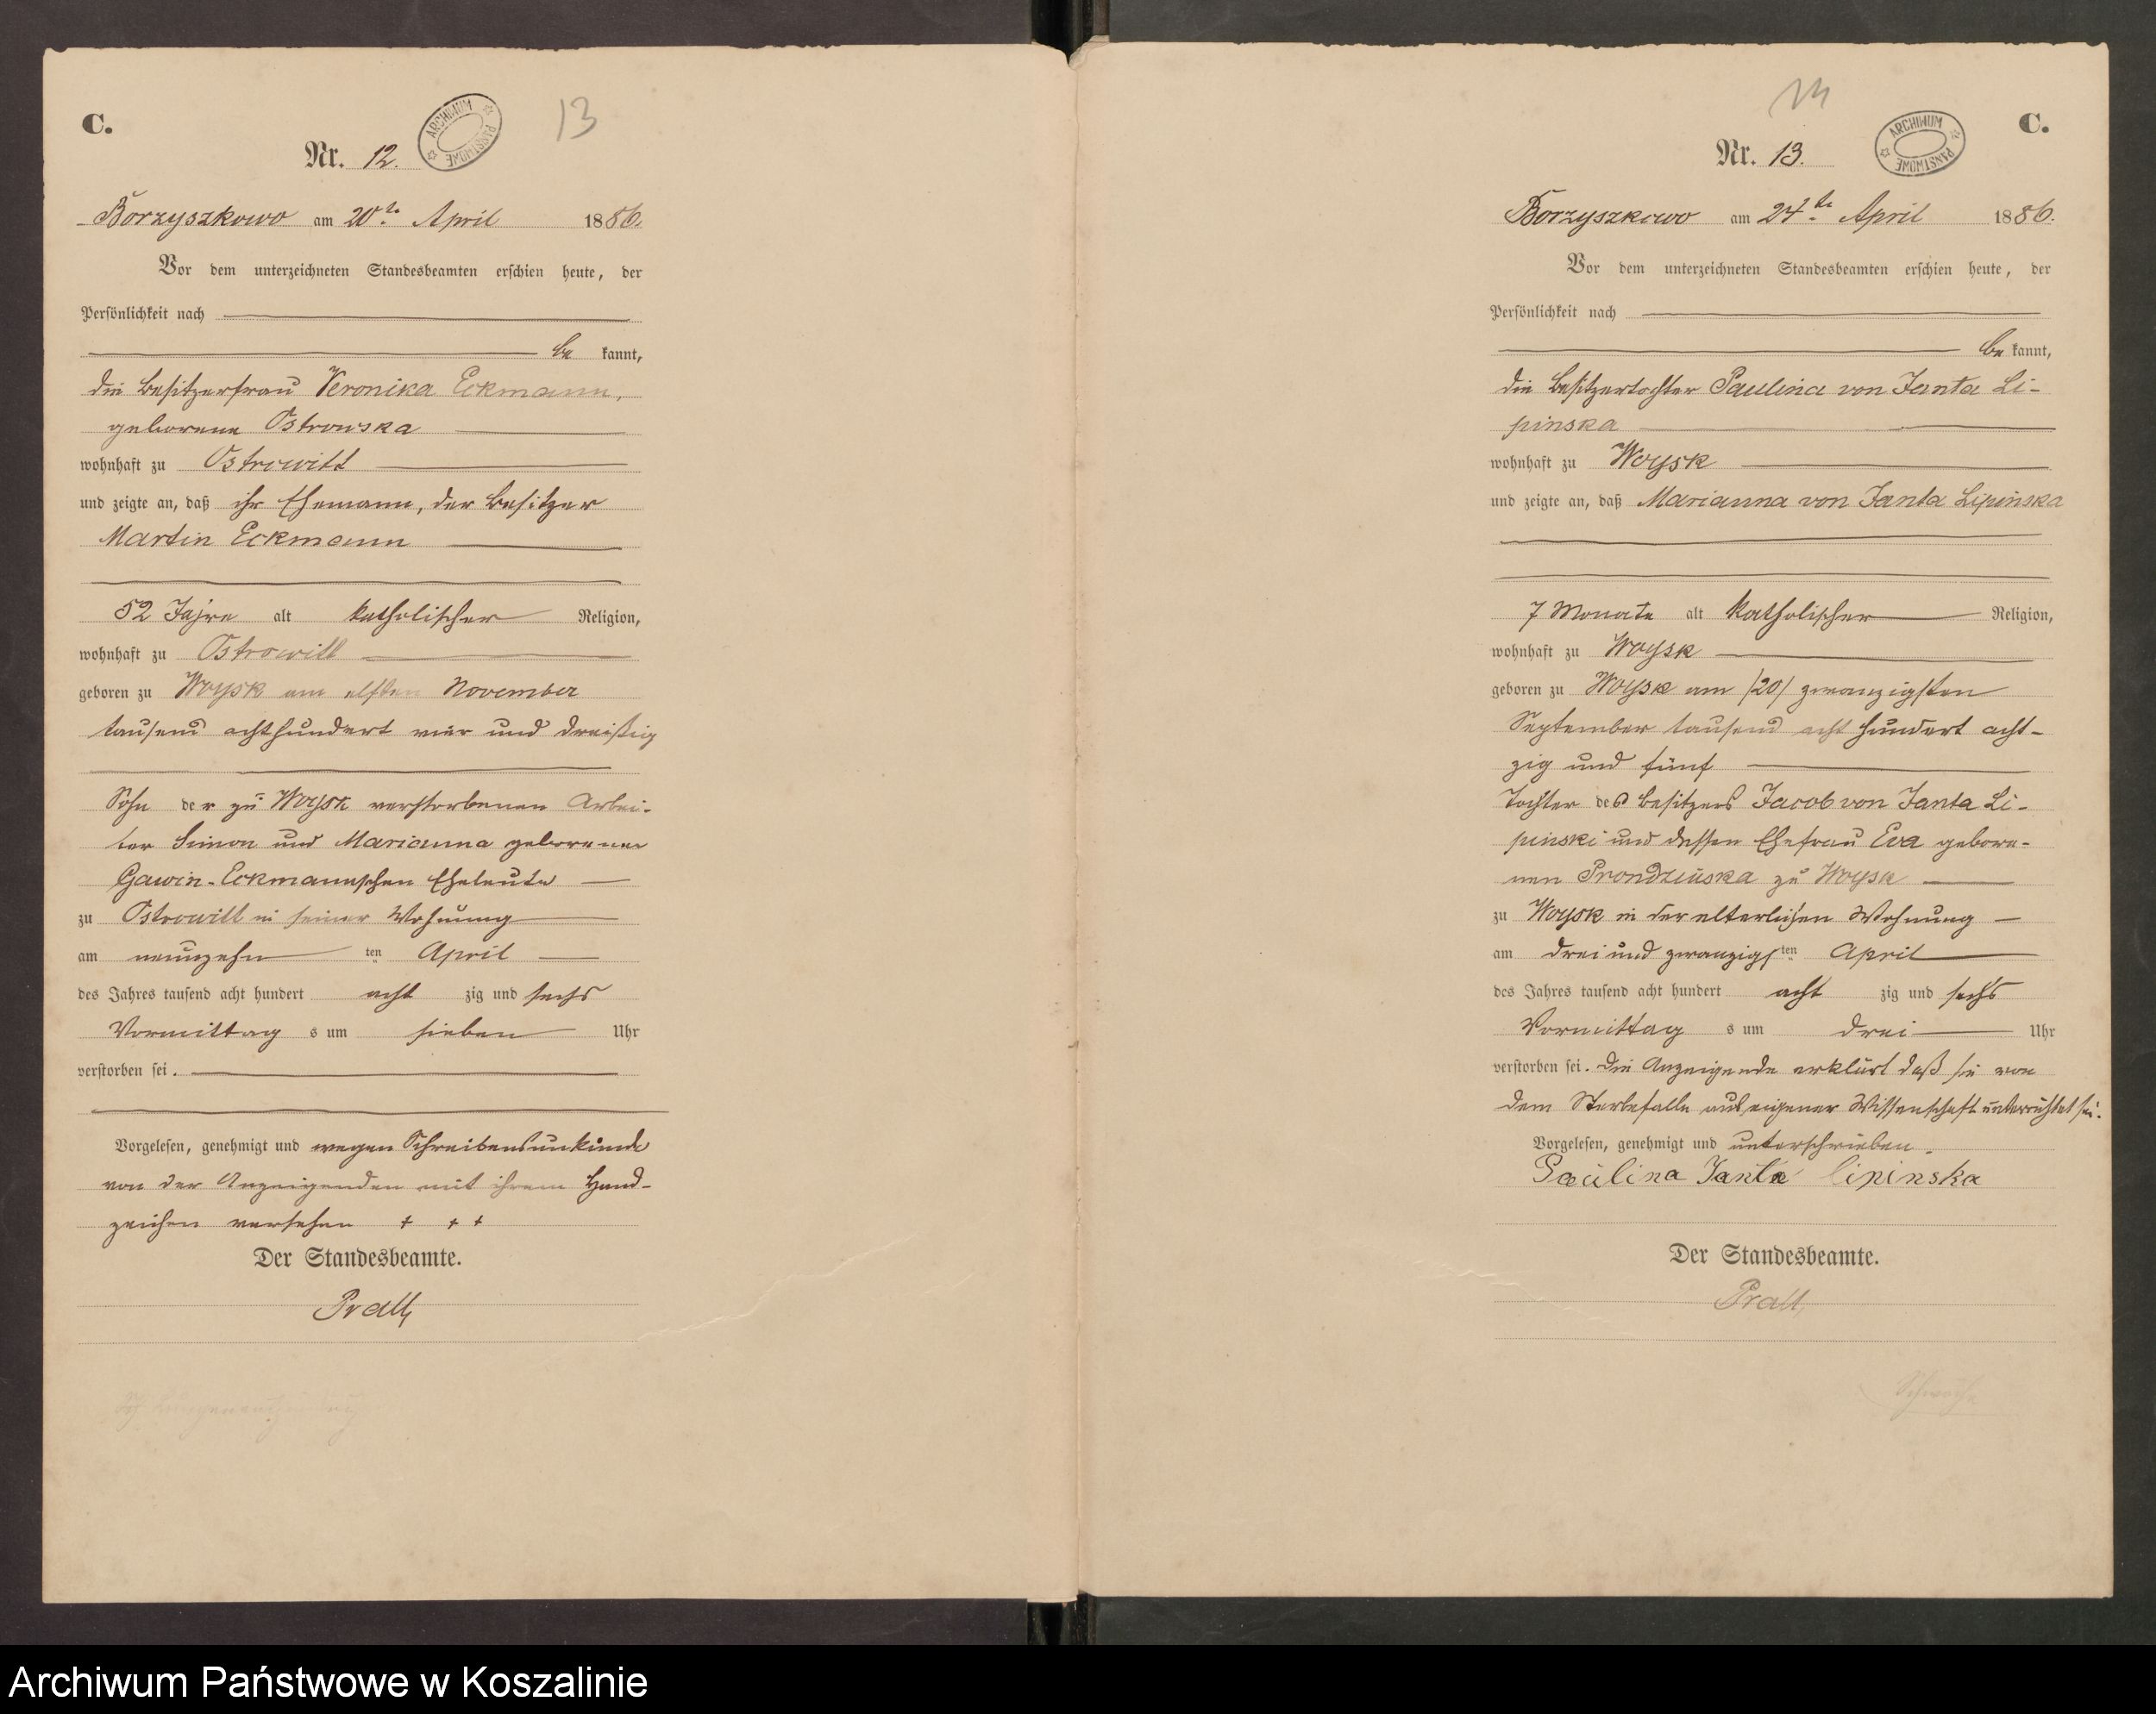 C.
13
Nr. 12.
ARCHIWUM PAŃSTWOWE
Borzyszkowo am 20ten April 1886.
Vor dem unterzeichneten Standesbeamten erschien heute, der
Persönlichkeit nach
be kannt,
die Besitzerfrau Veronika Eckmann,
geborene Ostrowska
wohnhaft zu Ostrowitt
und zeigte an, daß ihr Ehemann, der Besitzer
Martin Eckmann
52 Jahre alt katholischer Religion,
wohnhaft zu Ostrowitt
geboren zu Woysk am elften November
tausend achthundert vier und dreißig
Sohn der zu Woysk verstorbenen Arbei-
ter Simon und Marianna geborener
Gawin-Eckmannschen Eheleute
zu Ostrowitt in seiner Wohnung
am neunzehn ten April
des Jahres tausend acht hundert acht zig und sechs
Vormittag s um sieben Uhr
verstorben sei.
Vorgelesen, genehmigt und wegen Schreibensunkunde
von der Anzeigenden mit ihrem Hand-
zeichen versehen + + +
Der Standesbeamte.
Pratt
14
C.
Nr. 13.
ARCHIWUM PAŃSTWOWE
Borzyszkowo am 24ten April 1886.
Vor dem unterzeichneten Standesbeamten erschien heute, der
Persönlichkeit nach
be kannt,
die Besitzertochter Paulina von Janta Li-
pinska
wohnhaft zu Woysk
und zeigte an, daß Marianna von Janta Lipinska
7 Monate alt katholischer Religion,
wohnhaft zu Woysk
geboren zu Woysk am /20/ zwanzigsten
September tausend acht hundert acht-
zig und fünf
Tochter des Besitzers Jacob von Janta Li-
pinski und dessen Ehefrau Eva gebore-
nen Prondzinska zu Woysk
zu Woysk in der elterlichen Wohnung
am drei und zwanzigsten April
des Jahres tausend acht hundert acht zig und sechs
Vormittag s um drei Uhr
verstorben sei. Die Anzeigende erklärt daß sie von
dem Sterbefalle aus eigener Wissenschaft unterrichtet sei.
Vorgelesen, genehmigt und unterschrieben.
Paulina Janta lipinska
Der Standesbeamte.
Pratt
Schwäche
Archiwum Państwowe w Koszalinie